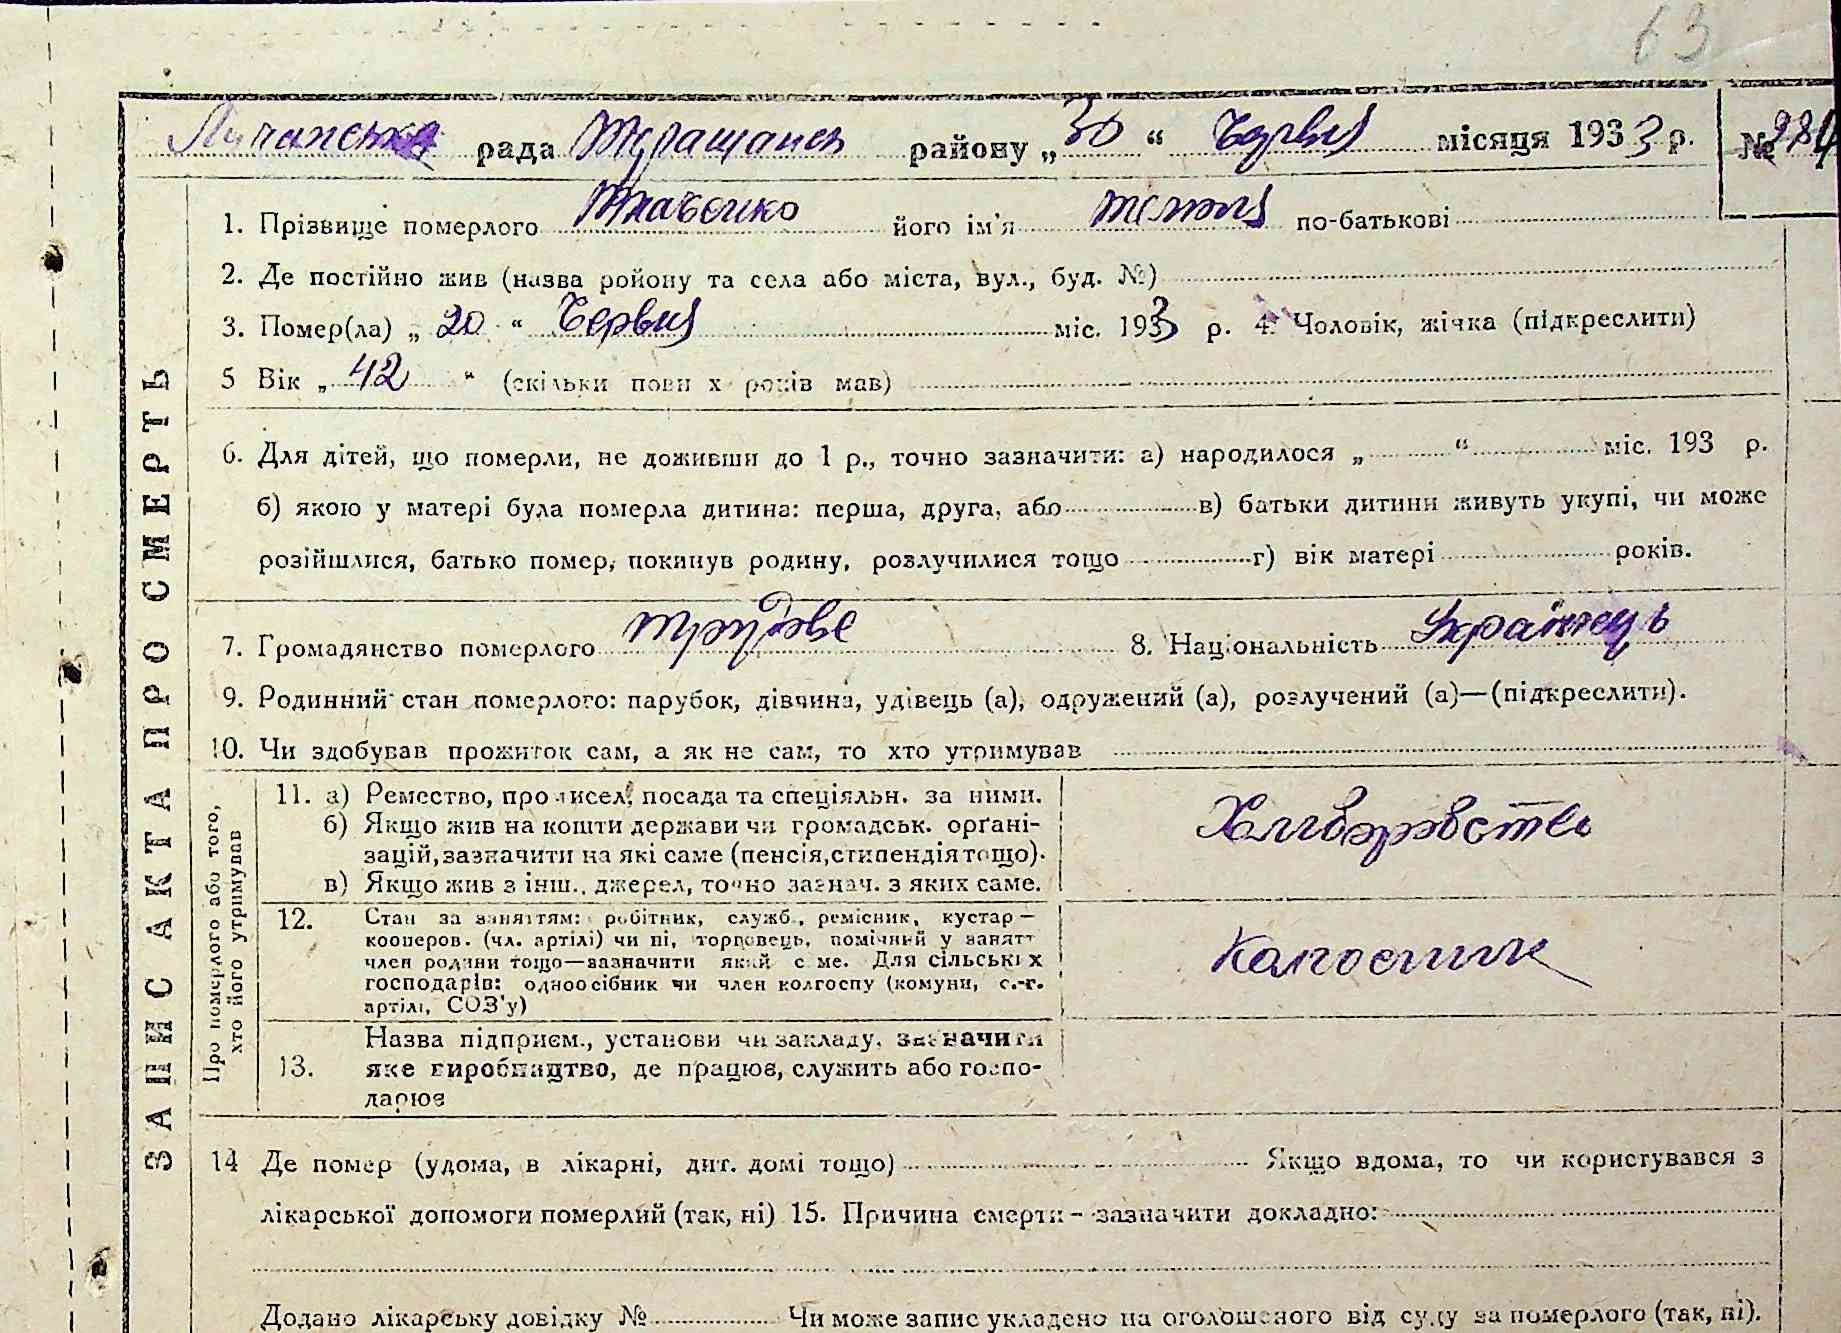 63
Лучанська рада Таращанск району „30“ Червня місяця 1933 р. № 284
1. Прізвище померлого його ім'я по-батькові
2. Де постійно жив (назва ройону та села або міста, вул., буд. №)
3. Помер(ла) „20“ Червня міс. 1933 р. 4. Чоловік, жінка (підкреслити)
5 Вік „42“ (скільки повних років мав)
6. Для дітей, що померли, не доживши до 1 р., точно зазначити: а) народилося „ “ міс. 193 р.
б) якою у матері була померла дитина: перша, друга, або в) батьки дитини живуть укупі, чи може
розійшлися, батько помер, покинув родину, розлучилися тощо г) вік матері років.
7. Громадянство померлого трудове 8. Національність Українець
9. Родинний стан померлого: парубок, дівчина, удівець (а), одружений (а), розлучений (а)—(підкреслити).
10. Чи здобував прожиток сам, а як не сам, то хто утримував
ЗАПИС АКТА ПРО СМЕРТЬ
Про померлого або того,
хто його утримував
11. а) Ремество, промисел, посада та спеціяльн. за ними.
б) Якщо жив на кошти держави чи громадськ. орґані-
зацій, зазначити на які саме (пенсія, стипендія тощо).
в) Якщо жив з інш. джерел, точно зазнач. з яких саме.
Хлиборобство
12. Стан за заняттям: робітник, служб., ремісник, кустар—
кооперов. (чл. артілі) чи ні, торговець, помічний у занятт
член родини тощо—зазначити який саме. Для сільських
господарів: одноосібник чи член колгоспу (комуни, с.-г.
артілі, СОЗ'у)
Колгоспник
13. Назва підприєм., установи чи закладу, зазначити
яке виробництво, де працює, служить або госпо-
дарює
14 Де помер (удома, в лікарні, дит. домі тощо) Якщо вдома, то чи користувався з
лікарської допомоги померлий (так, ні) 15. Причина смерти - зазначити докладно:
Додано лікарську довідку № Чи може запис укладено на оголошеного від суду за померлого (так, ні).